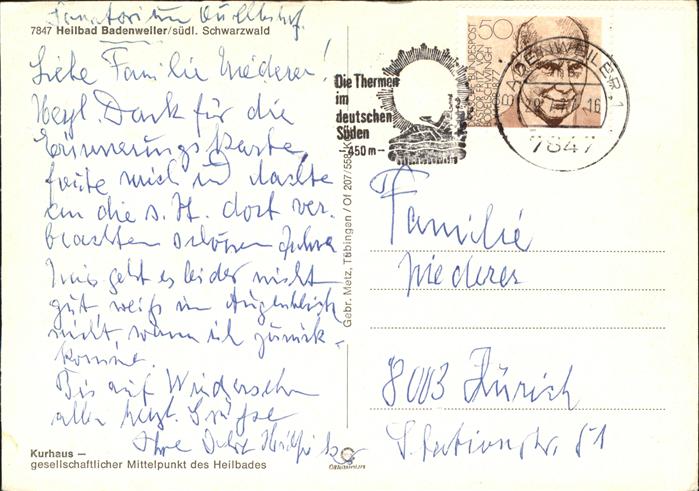 Sanatorium Quellenhof.
7847 Heilbad Badenweiler/südl. Schwarzwald
Liebe Familie Niederer!
Herzl. Dank für die
Erinnerungskarte,
freute mich und dachte
an die s. Zt. dort ver-
brachten schönen Jahre
geht es leider nicht
gut, weiß im Augenblick
nicht, wann ich zurück-
komme.
Bis auf Wiedersehn
allen herzl. Grüsse
Ihre
Kurhaus —
gesellschaftlicher Mittelpunkt des Heilbades
Gebr. Metz, Tübingen / Of 207/558
Die Thermen
im
deutschen
Süden
—450 m—
50
DEUTSCHE BUNDESPOST
BADENWEILER 1
-16
7847
Familie
Niederer
8003 Zürich
Stationstr. 51